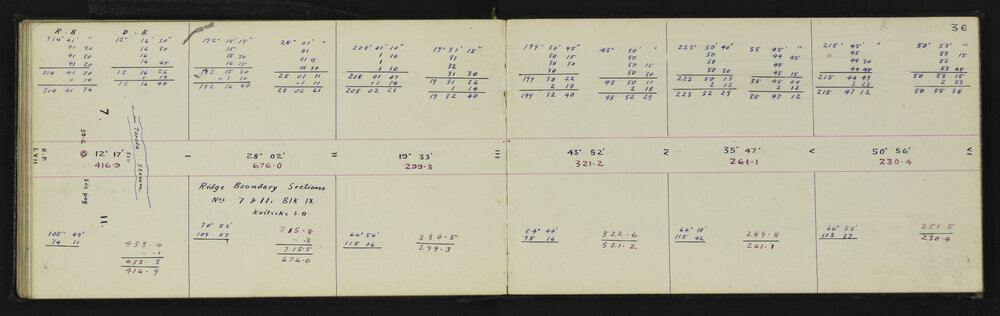 36
R. B. D. B.
314° 41' " 12° 16' 30"
41 30 16 30
41 30 16
41 20 16 45
314 41 20 12 16 26
314 41 34 12 16 40
192° 15' 15" 28° 01' "
15 01
15 30 01 15
16 15 01 30
192 15 30 28 01 11
+ 1 10 1 10
192 16 40 28 02 21
208° 01' 10" 19° 31' 15"
1 31
1 32
1 10 31 30
208 01 07 19 31 26
+1 14 1 14
208 02 21 19 32 40
199° 30' 45" 43° 50' "
30 15 50
30 30 50 15
30 50 30
199 30 22 43 50 11
2 18 2 18
199 32 40 43 52 29
223° 50' 40" 35° 45' "
50 44
50 45
50 30 45 15
223 50 17 35 45 00
2 12 2 12
223 52 29 35 47 12
215° 45' " 50° 53' "
44 53 15
44 30 53
44 45 53 45
215 44 49 50 53 15
2 23 2 23
215 47 12 50 55 38
R.P.
LVII
50.2
12° 17'
416.9
I
28° 02'
676.0
II
19° 33'
299.3
III
43° 52'
321.2
35° 47'
261.1
50° 56'
230.4
VI
7.
Stream
see pag
11.
Ridge Boundary Sections
Nos 7 & 11. Blk IX
S.D.
105° 49'
74 11
433.4
433.3
416.9
70° 53'
109 07
715.8
- .3
715.5
676.0
64° 54'
115 06
330.5
299.3
84° 44'
95 16
322.6
321.2
64° 18'
115 42
289.8
261.1
66° 23'
113 37
251.5
230.4